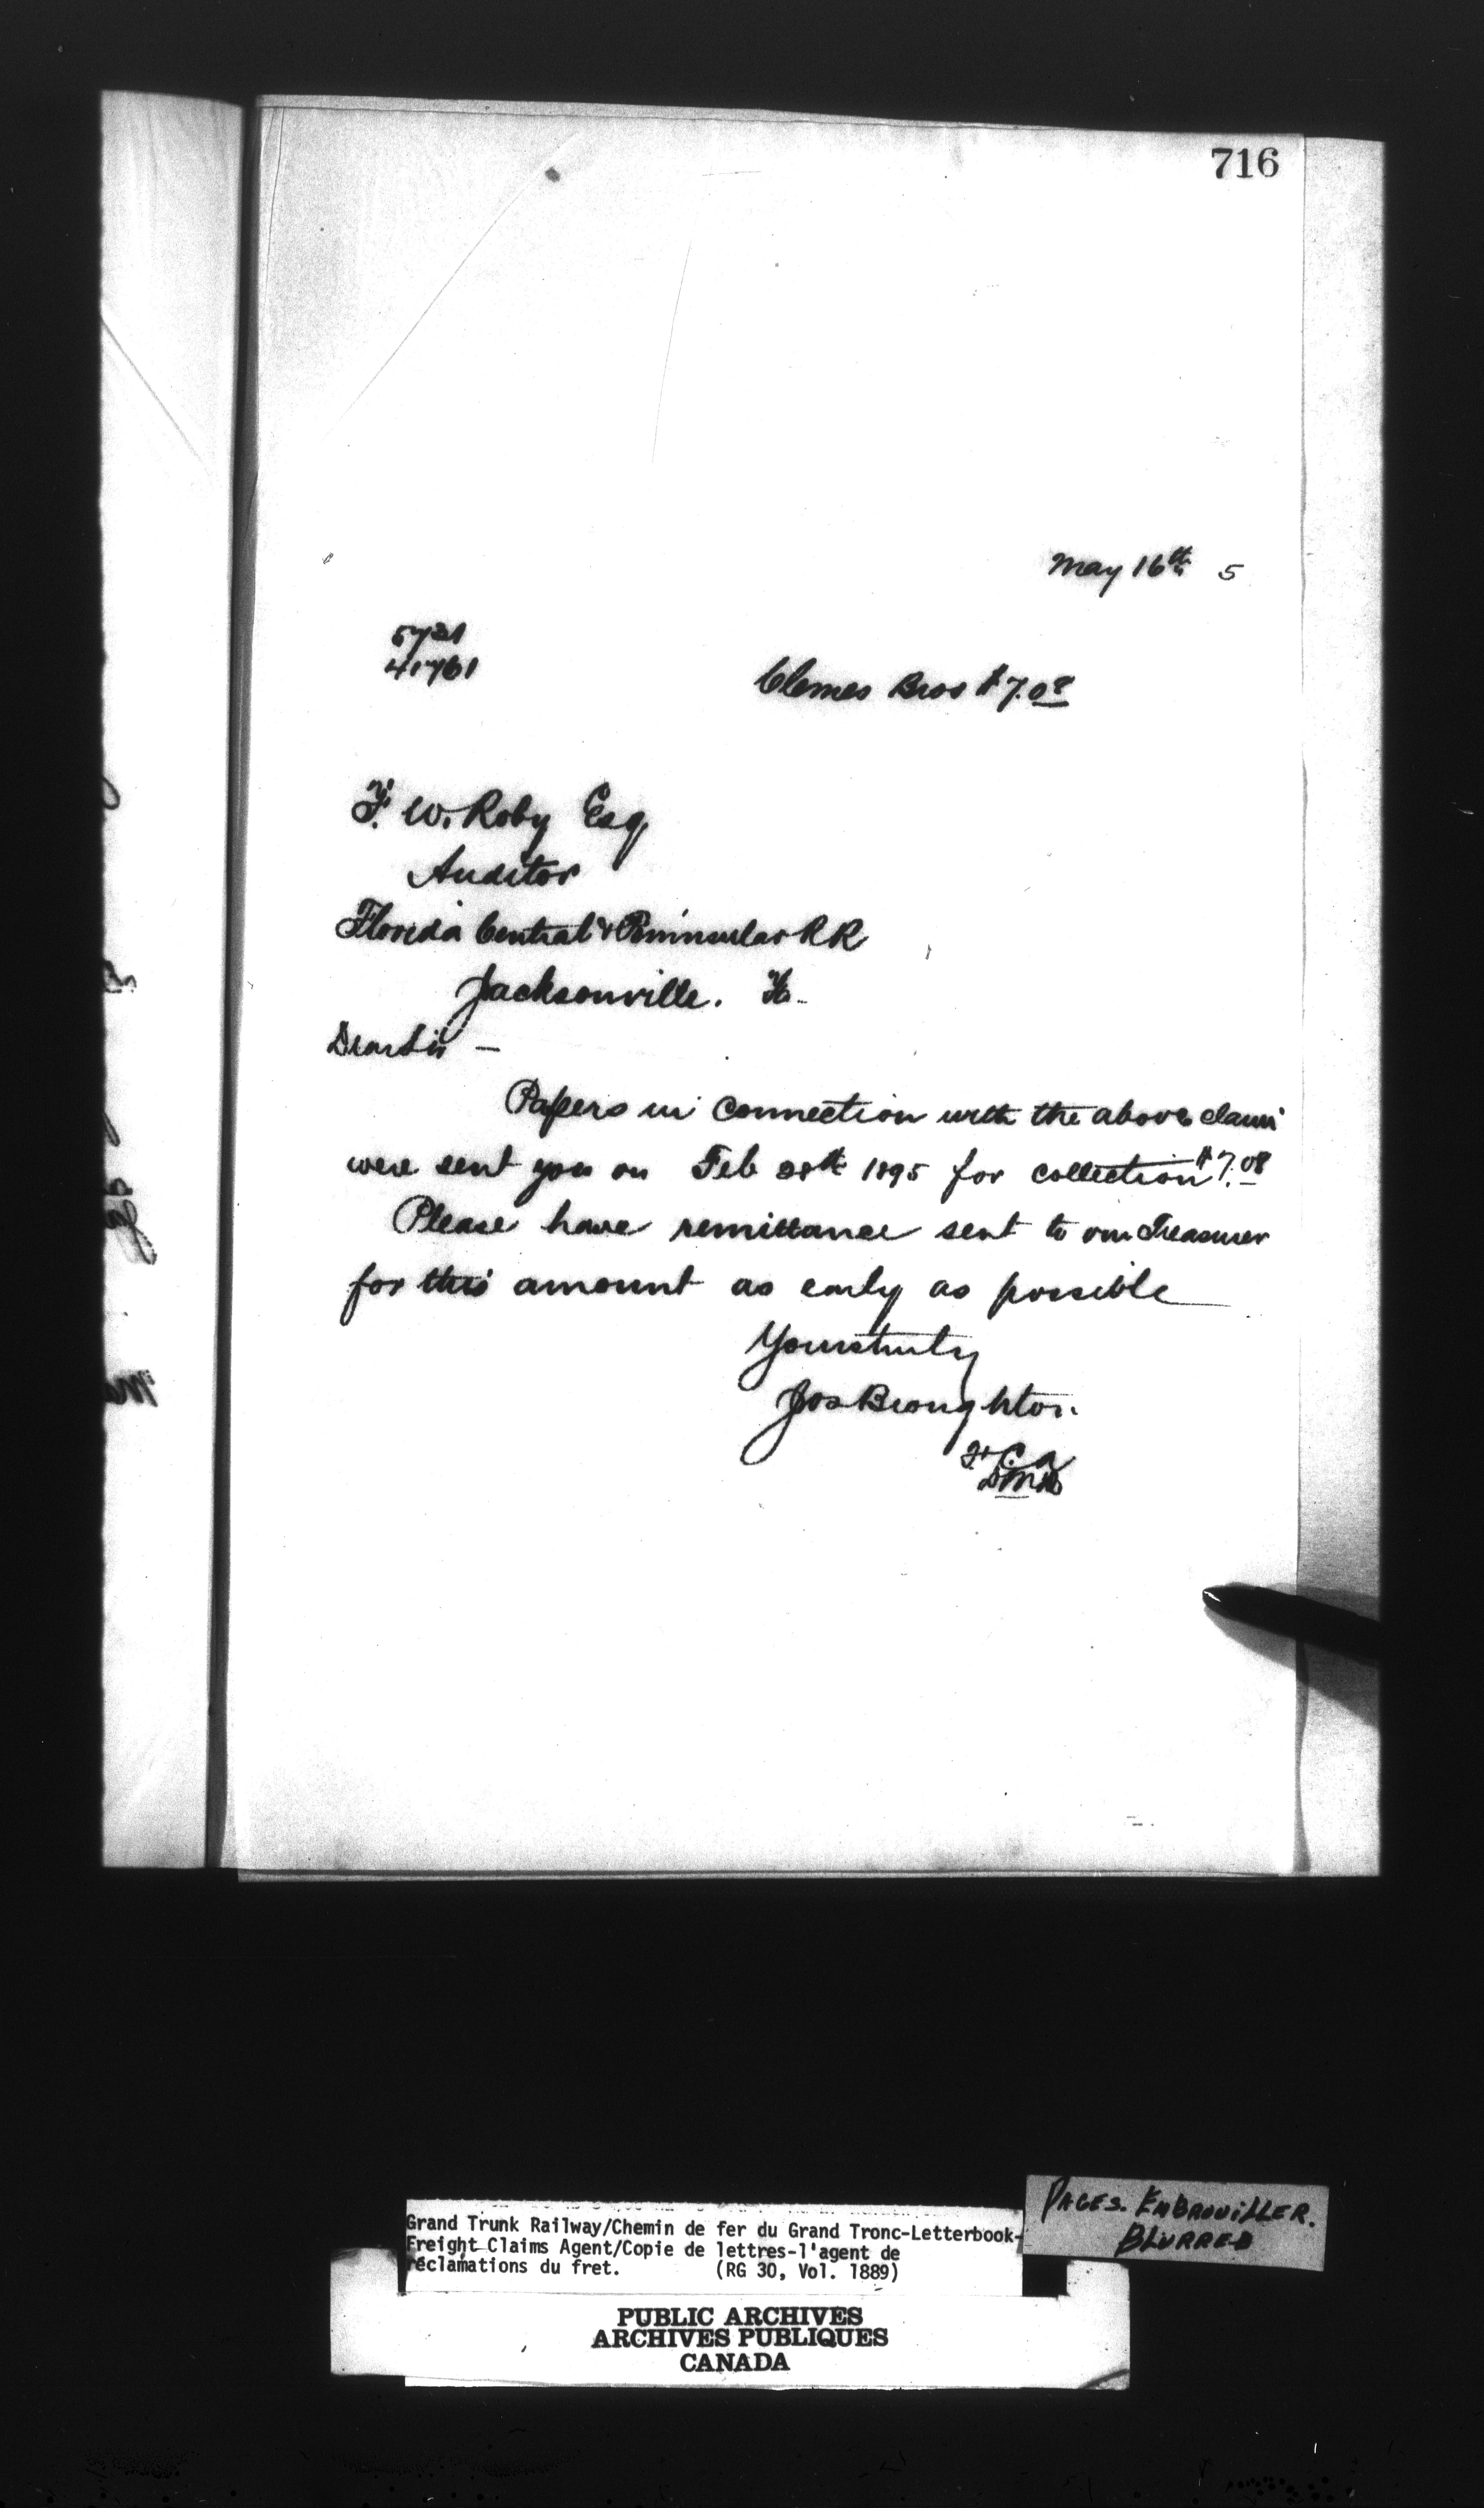 716
May 16th 5
5731
41761
Clemes Bros $7.08
F. W. Roby Esq
Auditor
Florida Central & Peninsular RR
Jacksonville. Fla.
Dear Sir —
Papers in connection with the above claim
were sent you on Feb 28th 1895 for collection $7.08
Please have remittance sent to our Treasurer
for this amount as early as possible
Yours truly
Jos Broughton
F.C.A
Grand Trunk Railway/Chemin de fer du Grand Tronc-Letterbook-
Freight Claims Agent/Copie de lettres-l'agent de
réclamations du fret. (RG 30, Vol. 1889)
PAGES. EMBROUILLER.
BLURRED
PUBLIC ARCHIVES
ARCHIVES PUBLIQUES
CANADA